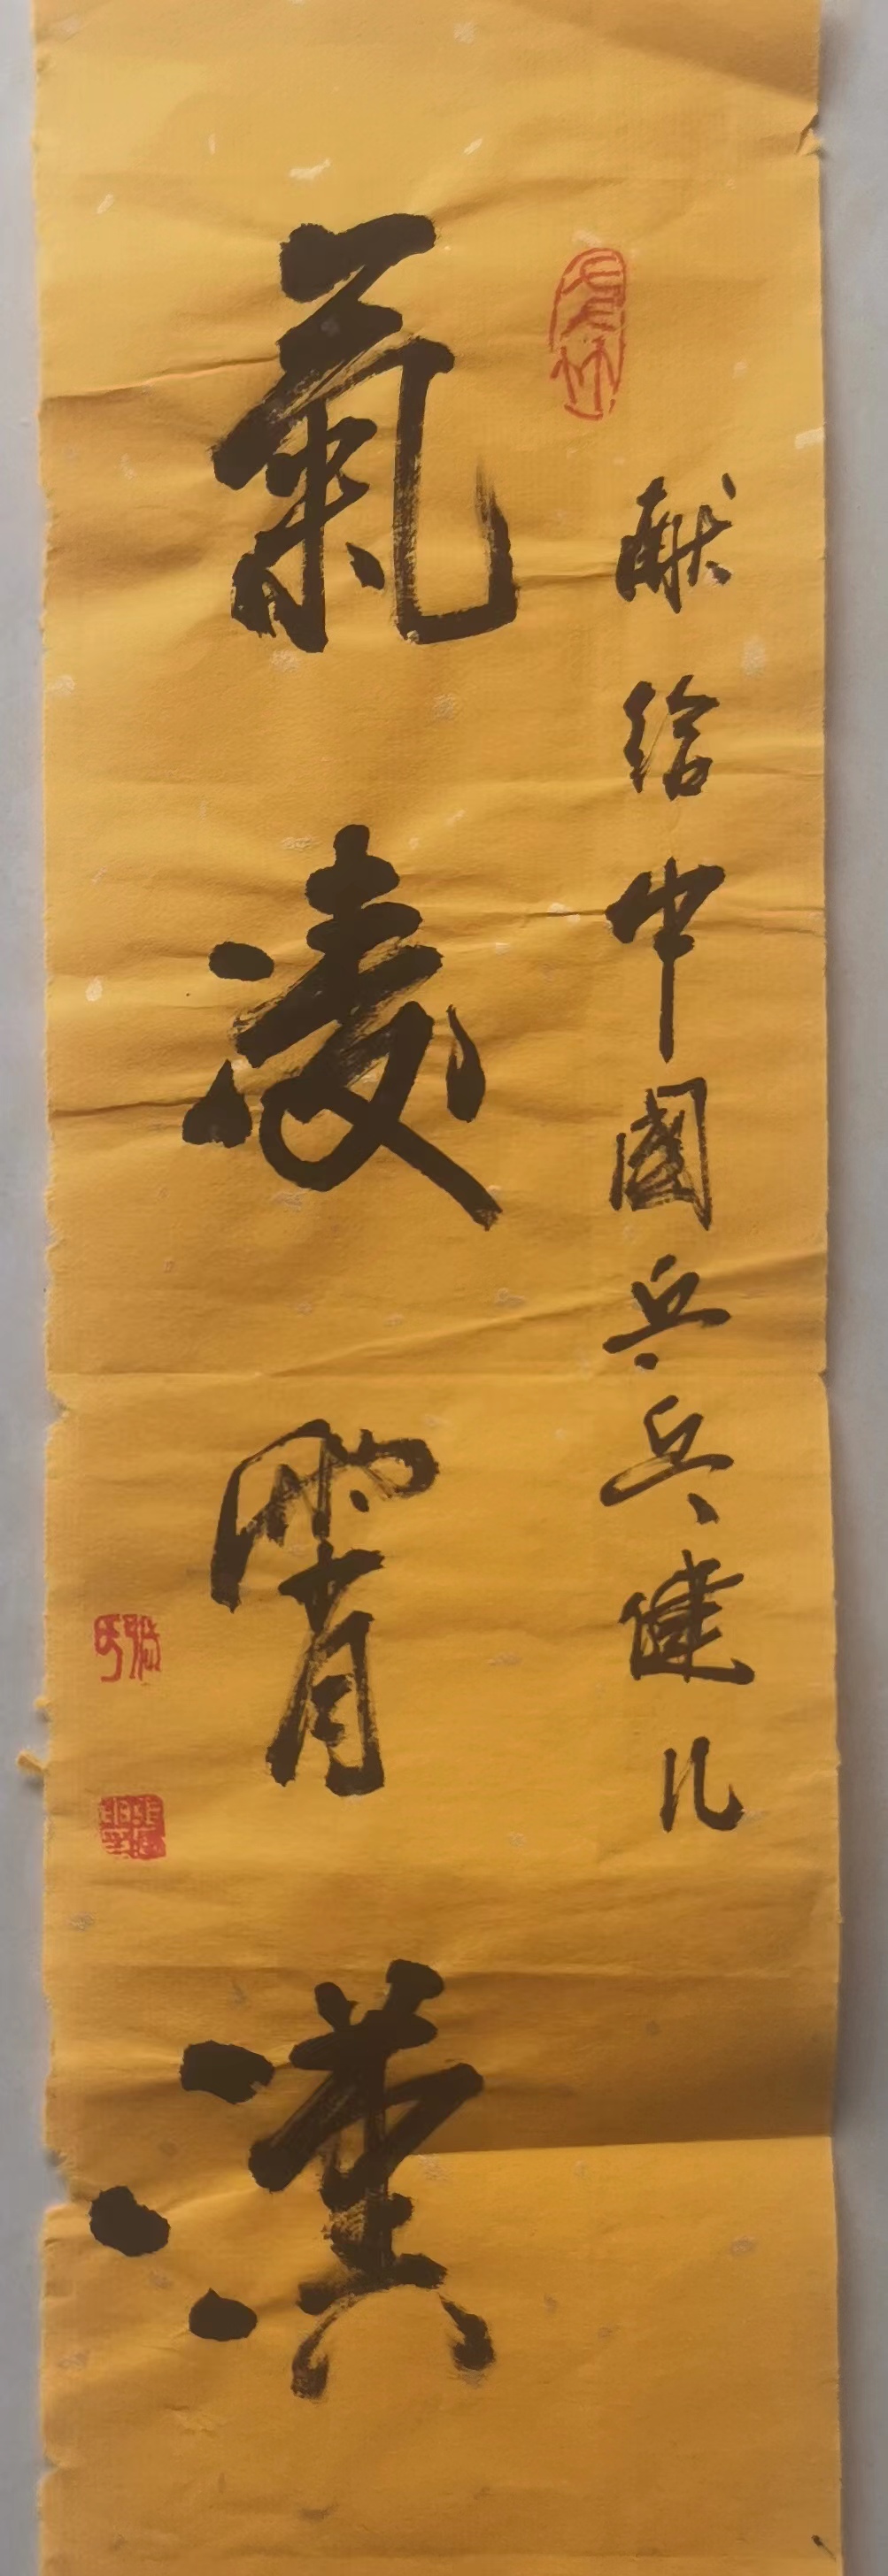 献给中國乒乓健儿
氣凌霄漢